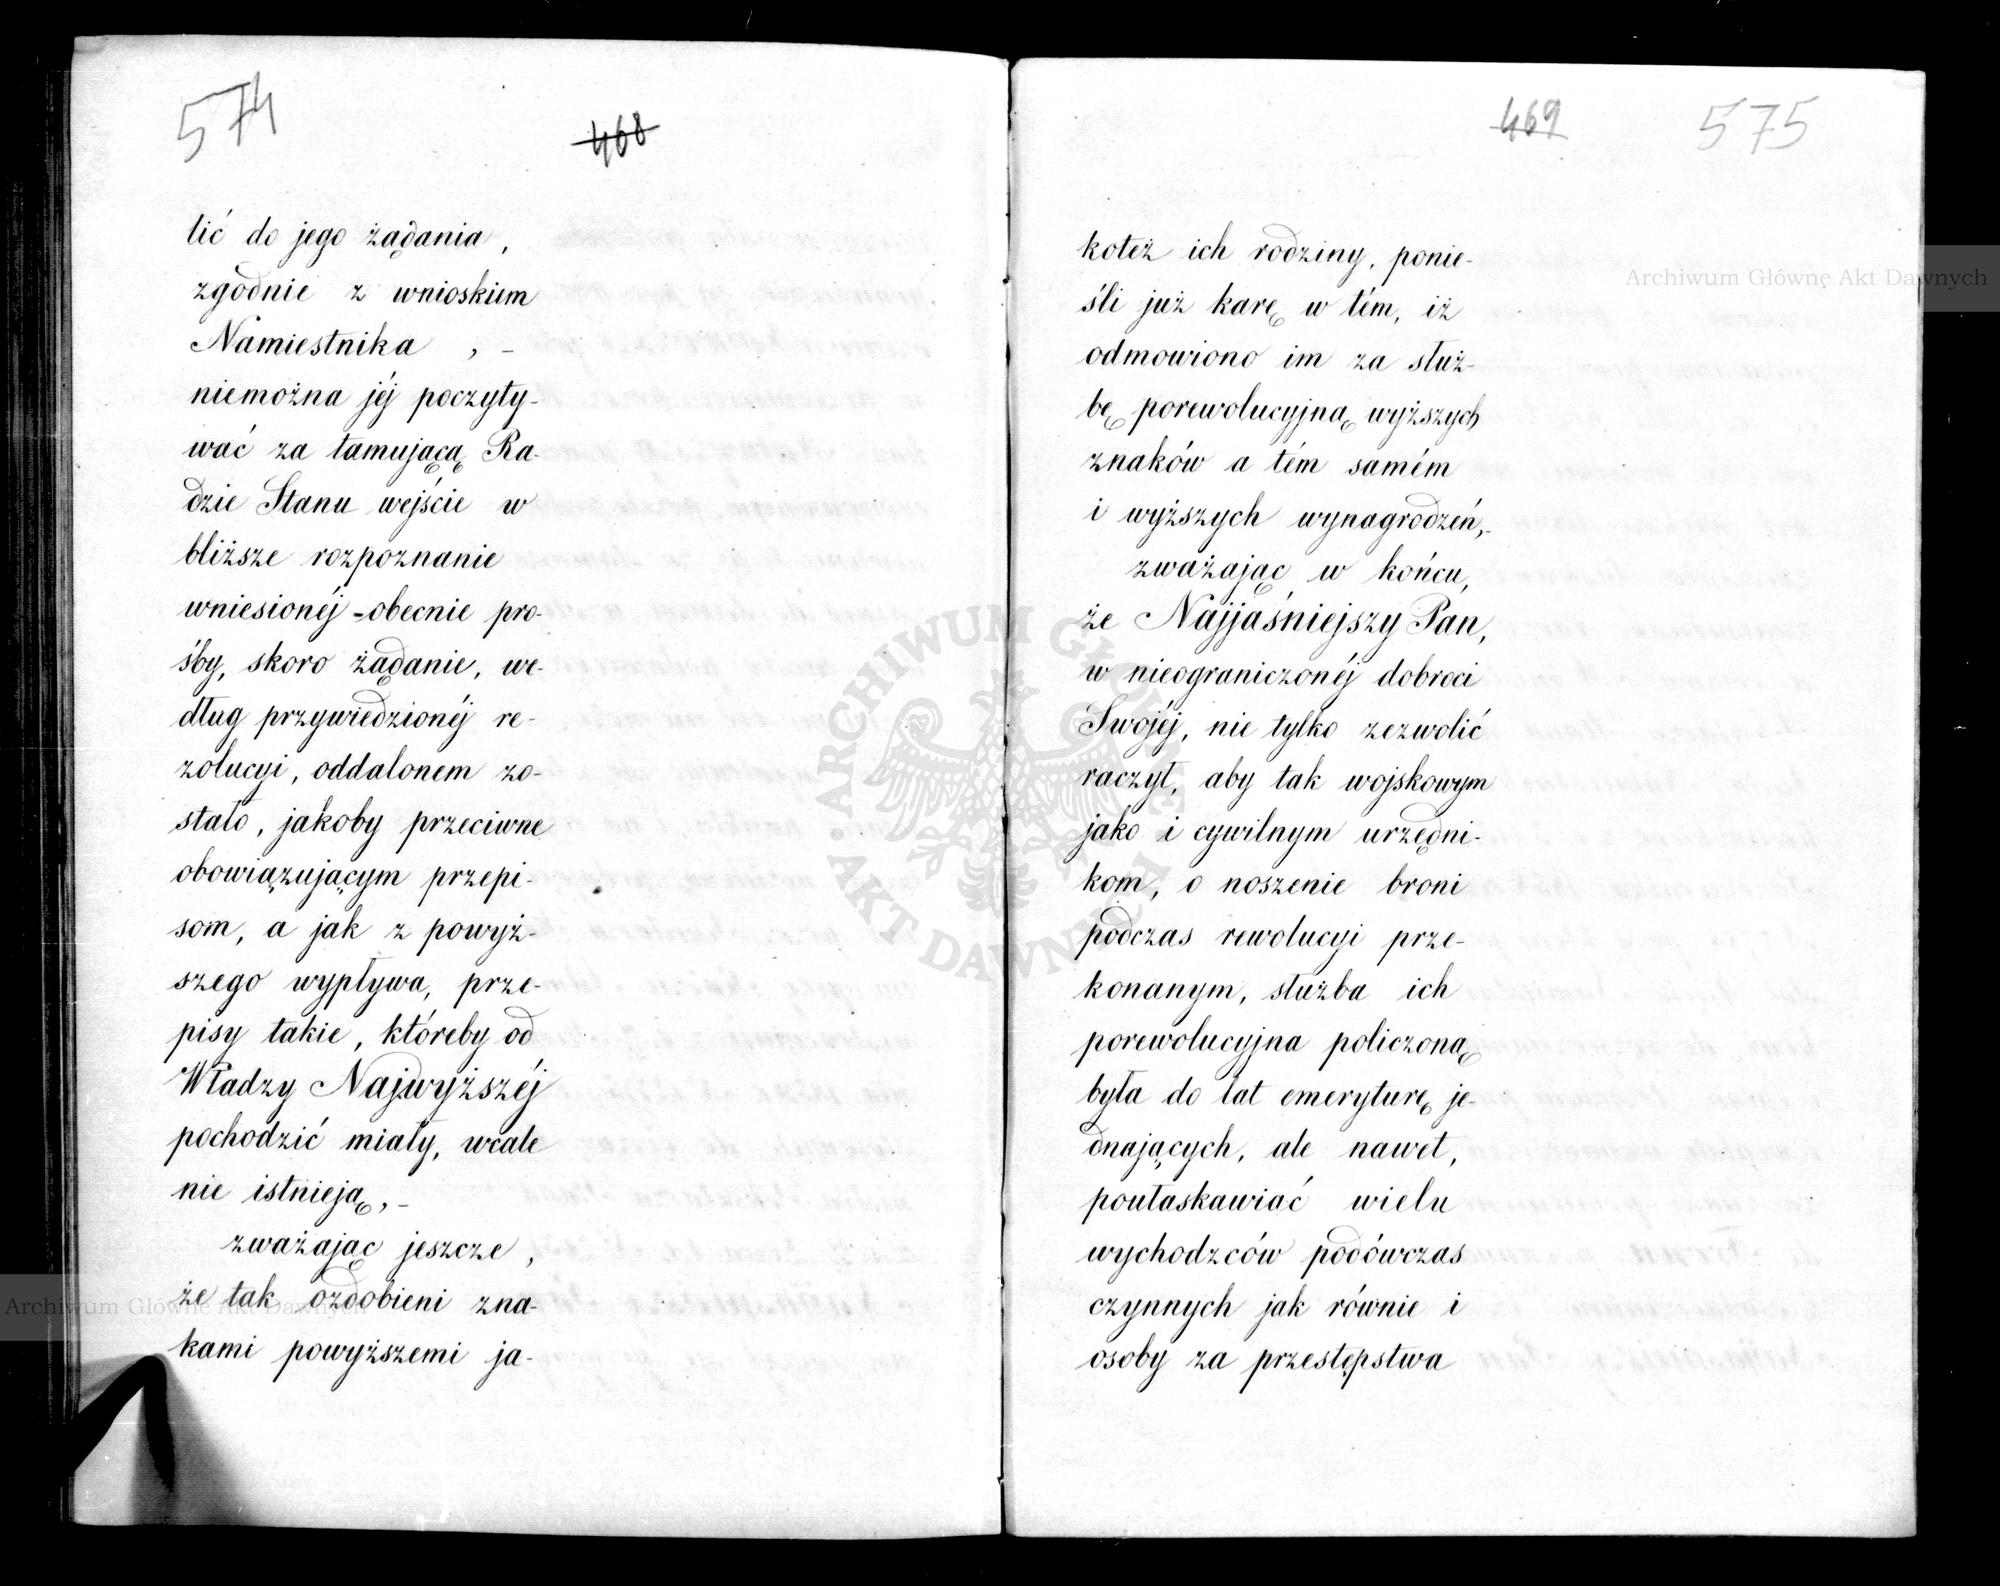 574
468
lić do jego żądania,
zgodnie z wnioskiem
Namiestnika , –
niemożna jéj poczyty-
wać za tamującą Ra-
dzie Stanu wejście w
bliższe rozpoznanie
wniesionéj obecnie pro-
śby, skoro żądanie, we-
dług przywiedzionéj re-
zolucyi, oddalonem zo-
stało, jakoby przeciwne
obowiązującym przepi-
som, a jak z powyż-
szego wypływa, prze-
pisy takie, któreby od
Władzy Najwyższéj
pochodzić miały, wcale
nie istnieją, –
zważając jeszcze,
że tak ozdobieni zna-
kami powyższemi ja-
469 575
koteż ich rodziny, ponie-
śli już karę w tém, iż
odmowiono im za służ-
bę porewolucyjną wyższych
znaków a tém samém
i wyższych wynagrodzeń, –
zważając w końcu,
że Najjaśniejszy Pan,
w nieograniczonéj dobroci
Swojéj, nie tylko zezwolić
raczył, aby tak wojskowym
jako i cywilnym urzędni-
kom, o noszenie broni
podczas rewolucyi prze-
konanym, służba ich
porewolucyjna policzoną
była do lat emeryturę je-
dnających, ale nawet,
poułaskawiać wielu
wychodzców podówczas
czynnych jak równie i
osoby za przestępstwa
Archiwum Główne Akt Dawnych
Archiwum Główne Akt Dawnych
ARCHIWUM GŁÓWNE AKT DAWNYCH